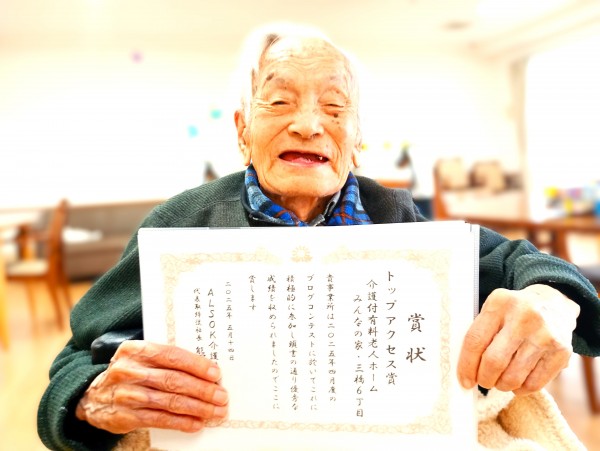 賞状
トップアクセス賞
介護付有料老人ホーム
みんなの家・三橋6丁目
貴事業所は二〇二五年四月度の
ブログコンテストに於いてこれに
積極的に参加し頭書の通り優秀な
成績を収められましたのでここに
賞します
二〇二五年 五月十四日
ALSOK介護
代表取締役社長 熊